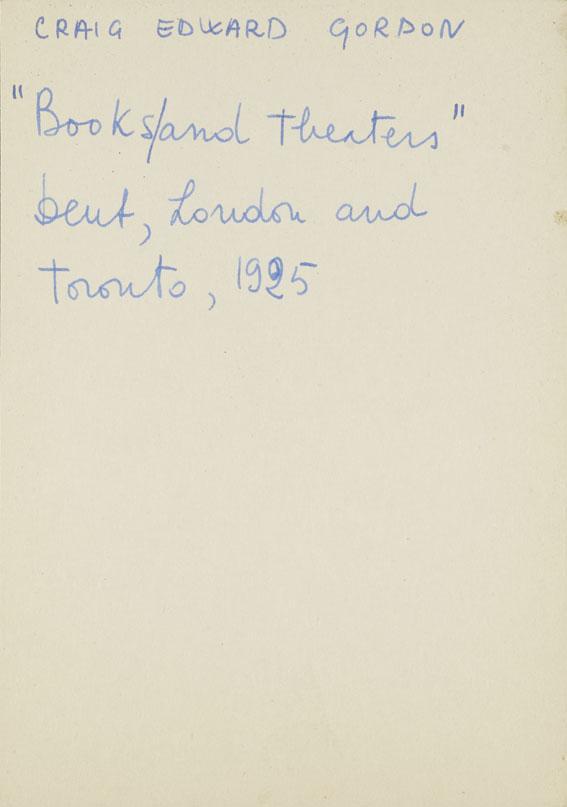 CRAIG EDWARD GORDON
"Books/and theaters"
bent, London and
toronto, 1925